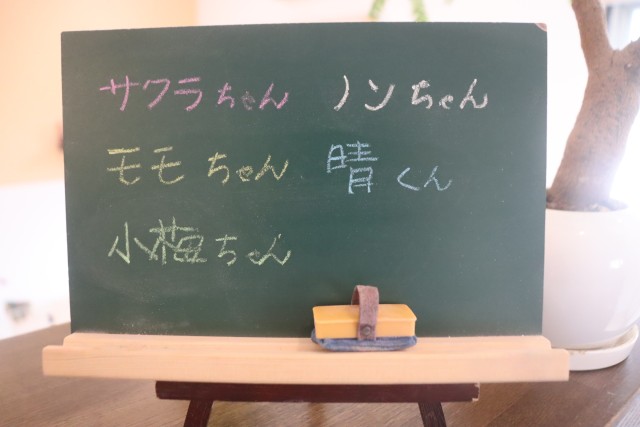 サクラちゃん ノンちゃん
モモちゃん 晴くん
小梅ちゃん